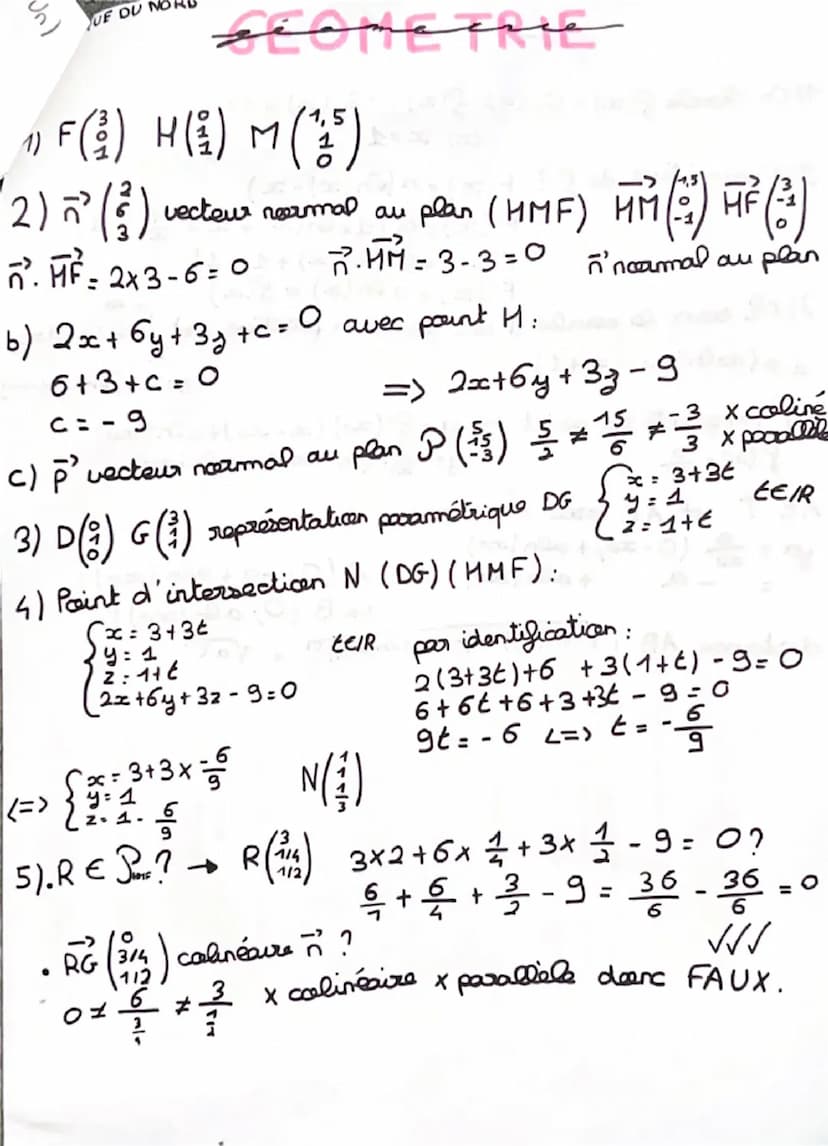 UE DU NORD
GÉOMETRIE
1) F(3 0 1) H(0 1 1) M(1,5 1 0)
2) n→ (2 6 3) vecteur normal au plan (HMF) HM→(1,5 0 -1) HF→(3 -1 0)
n→. HF→ = 2x3-6=0 n→. HM→ = 3-3=0 n→ normal au plan
b) 2x+6y+3z+c=0 avec point H:
6+3+c=0
c=-9 => 2x+6y+3z-9
c) p→ vecteur normal au plan P (5 15 -3) 5/2 ≠ 15/6 ≠ -3/3 x coliné
x parallèle
3) D(0 1 0) G(3 1 1) représentation paramétrique DG { x = 3+3t
y = 1
z = 1+t t∈IR
4) Point d'intersection N (DG)(HMF):
{ x = 3+3t t∈IR par identification:
y = 1 2(3+3t)+6 +3(1+t)-9=0
z = 1+t 6+6t+6+3+3t-9=0
2x+6y+3z-9=0 9t=-6 <=> t=-6/9
<=> { x = 3+3x-6/9 N(1 1 1/3)
y = 1
z = 1-6/9
5).R ∈ P HMF? → R(3 1/4 1/2) 3x2+6x 1/4+3x 1/2-9=0?
6/1+6/4+3/2-9=36/6-36/6=0
• RG→ (0 3/4 1/2) colinéaire n→ ?
0≠ 6/(3/4) ≠ 3/(1/2) x colinéaire x parallèle donc FAUX.